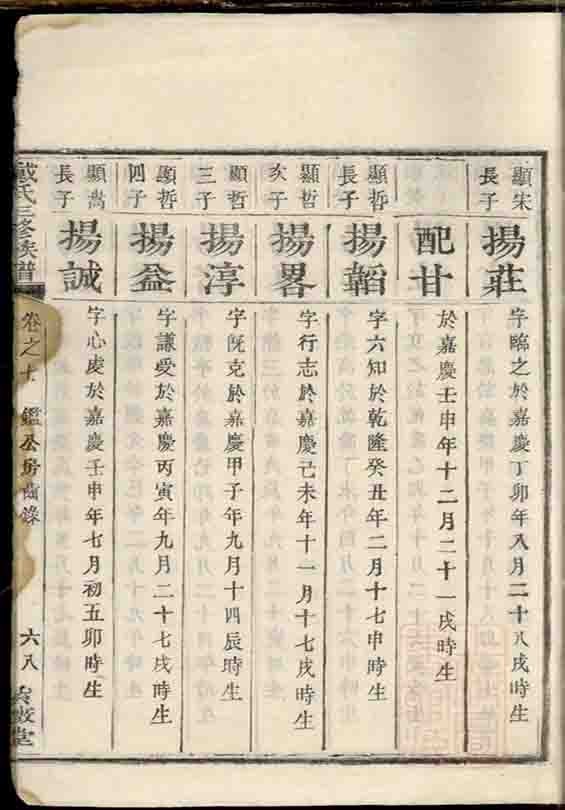 顯宋長子
揚莊
字臨之於嘉慶丁卯年八月二十八戌時生
配甘
於嘉慶壬申年十二月二十一戌時生
顯哲長子
揚韜
字六知於乾隆癸丑年二月十七申時生
顯哲次子
揚畧
字行志於嘉慶己未年十一月十七戌時生
顯哲三子
揚淳
字既克於嘉慶甲子年九月十四辰時生
顯哲四子
揚益
字謙受於嘉慶丙寅年九月二十七戌時生
顯嵩長子
揚誠
字心處於嘉慶壬申年七月初五卯時生
戴氏三修族譜
卷之十 鑑公房齒錄
六八